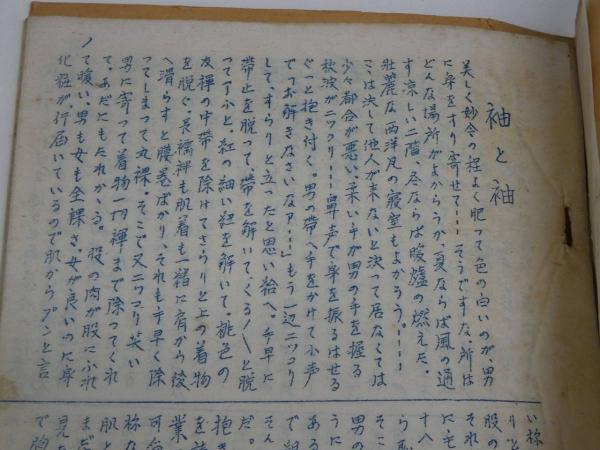 袖と袖
美しく妙令の程よく肥って色の白いのが、男
に身をすり寄せて……そうですな、所は
どんな場所がよからうか、夏ならば風の通
す涼しい二階、冬ならば暖爐の燃えた、
壯麗な西洋風の寝室もよかろう。……
こゝは決して他人が来ないと決って居なくては
少々都合が悪い。柔い手が男の手を握る
秋波がニッツリ……鼻声で身を振るはせる
ぐっと抱き付く。男の帯へ手をかけて小声
でっお解きなさいなア……」もう一辺ニッツリ
して、すらりと立ったと思い給へ。手早に
帯止を脱って、帯を解いてくる／＼と脱
って了ふと。紅の細い紐を解いて。桃色の
友禅の中帯を除けてさらりと上の着物
を脱ぐ。長襦袢も肌着も一緒に肩から後
へ滑らすと腰巻ばかり、それも手早く除
ってしまって丸裸。そこで又ニッツリ笑い
男に寄って着物一切褌まで除ってくれ
て。あだにもたれかゝる。股の肉が股にふれ
て暖い。男も女も全裸さ。女が良いのに身
化粧が、行届いているので肌からプンと言
い
りっと
股の
それ
にも
十八
ら
そこ
男の
うに
ある
で
そん
だ。
抱き
を
業
可
祢
肌と
まだ
見た
で胸